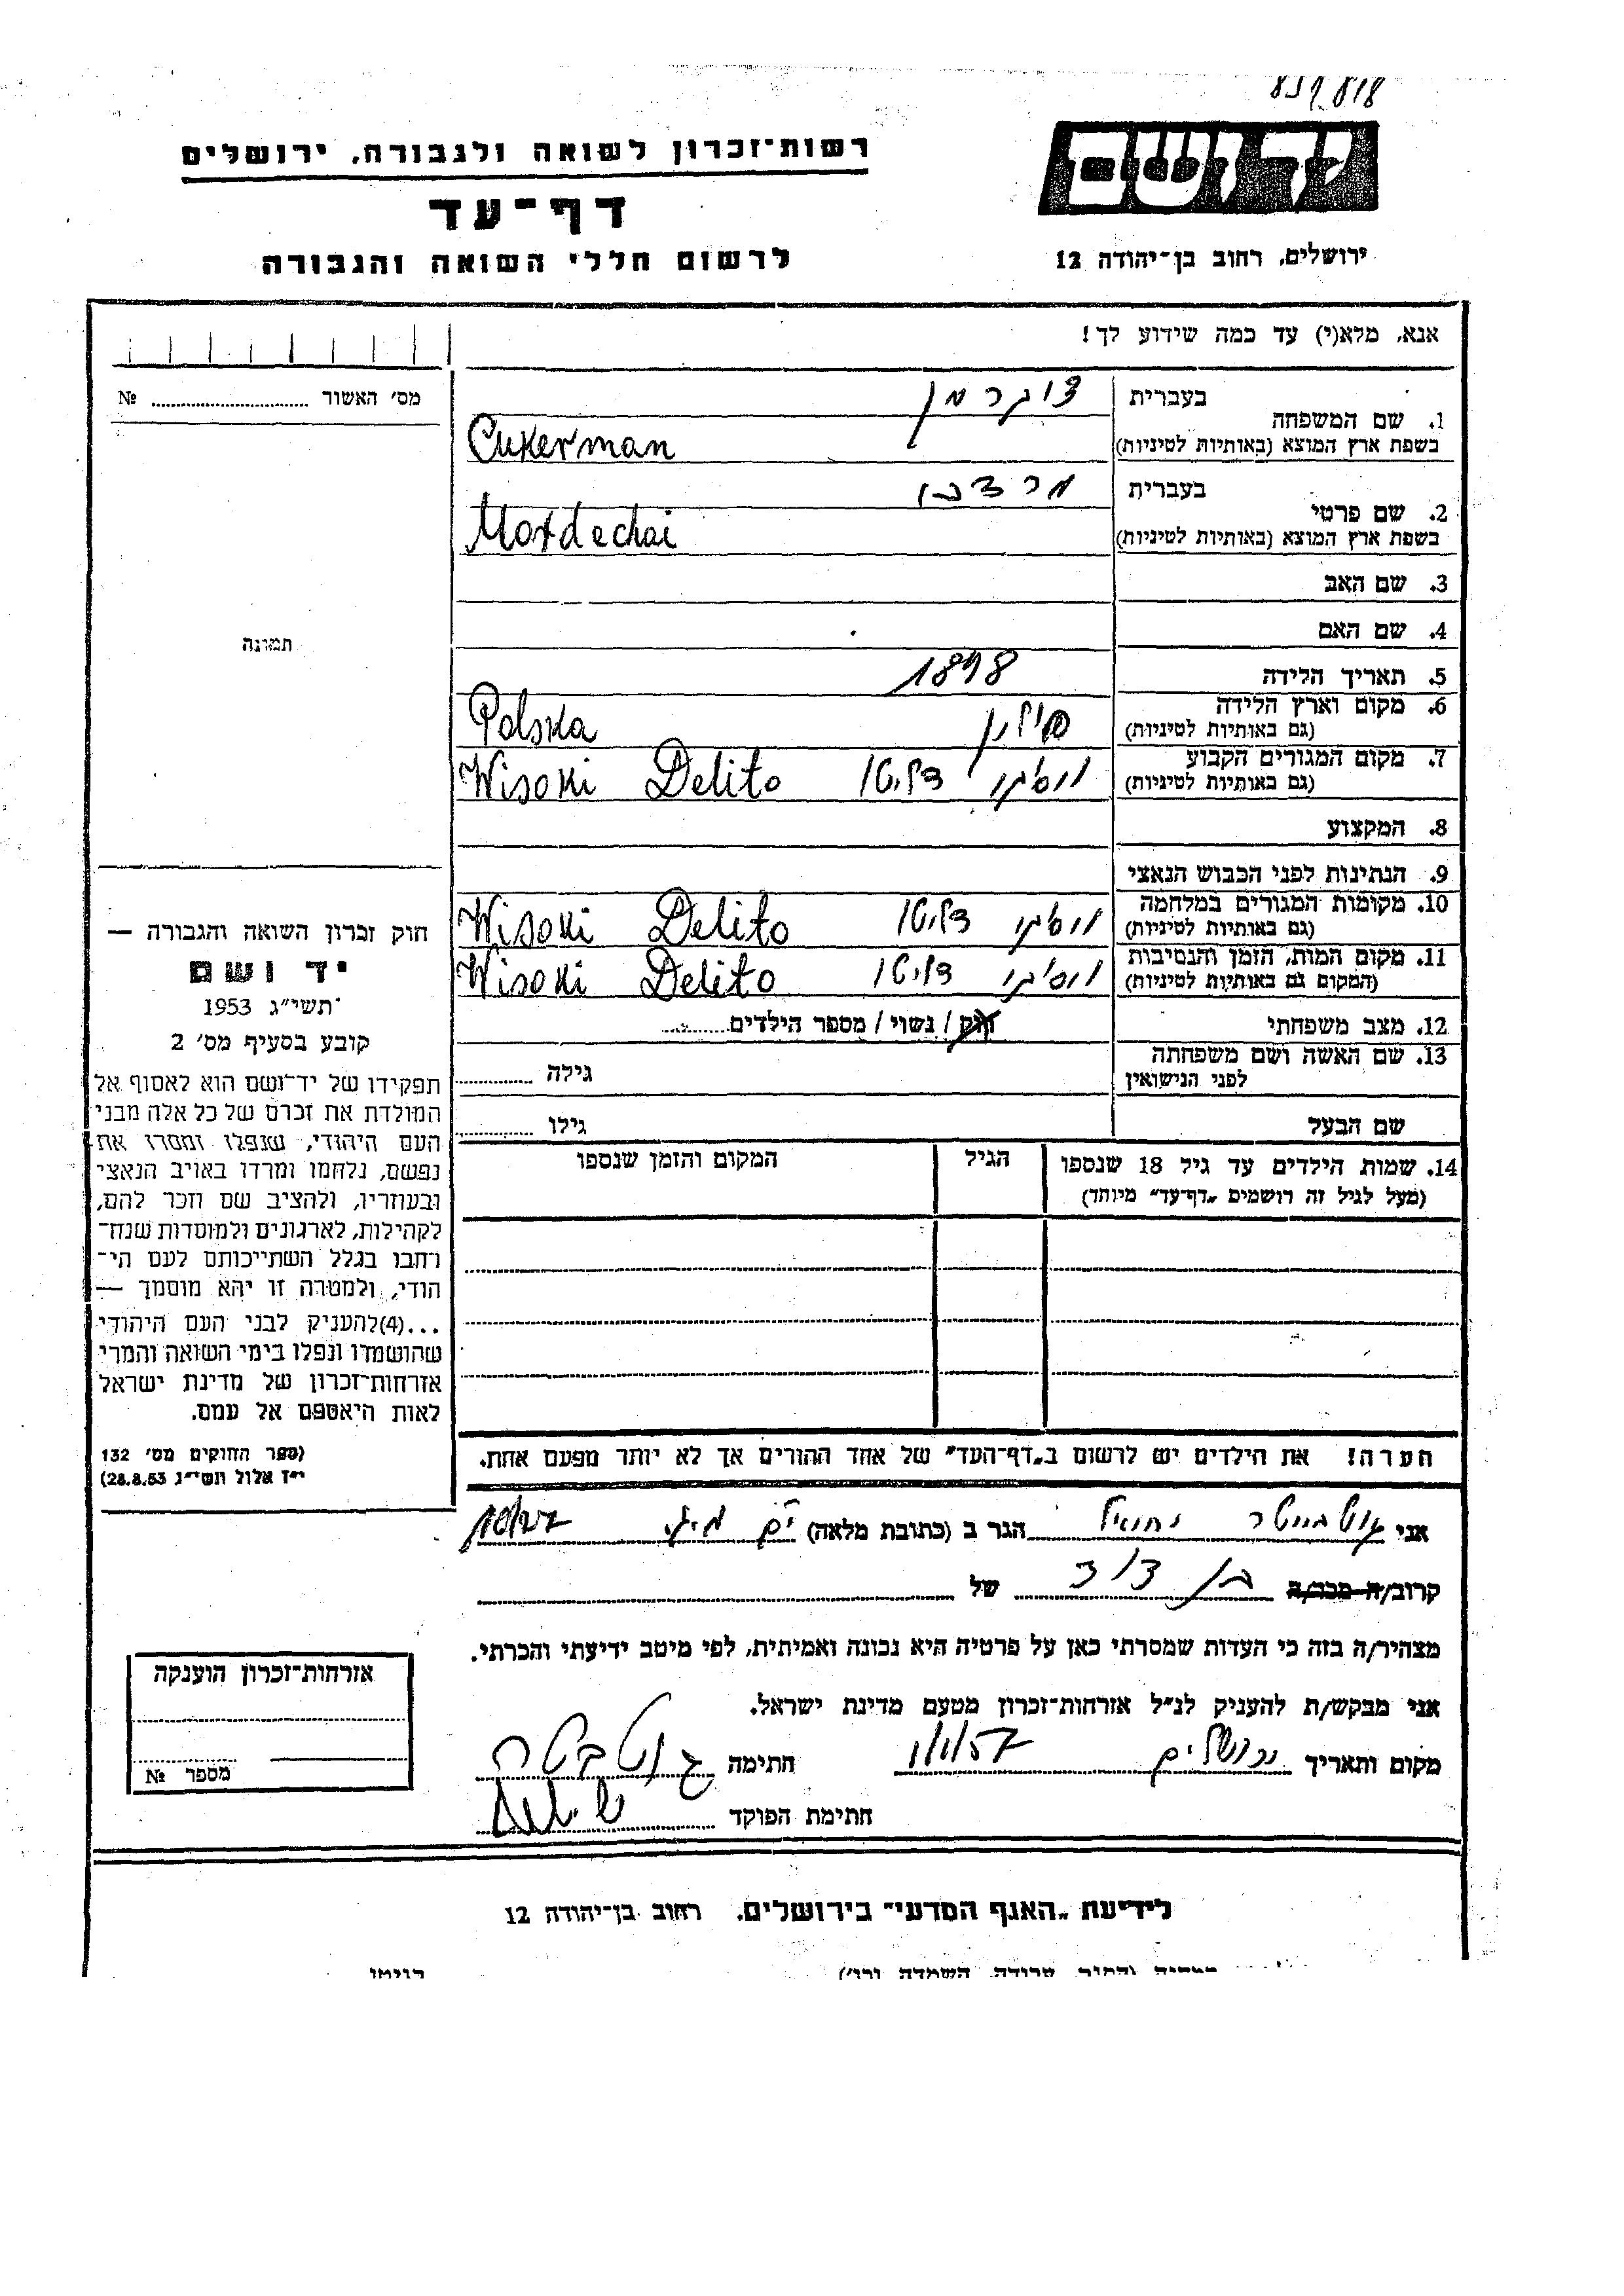 רשות־זכרון לשואה ולגבורה, ירושלים
דף־עד
לרשום חללי השואה והגבורה
יד ושם
ירושלים, רחוב בן־יהודה 12
אנא, מלא(י) עד כמה שידוע לך!
מס׳ האשור ........ №
תמונה
1. שם המשפחה
בעברית צוקרמן
בשפת ארץ המוצא (באותיות לטיניות) Cukerman
2. שם פרטי
בעברית מרדכי
בשפת ארץ המוצא (באותיות לטיניות) Mordechai
3. שם האב
4. שם האם
5. תאריך הלידה 1898
6. מקום וארץ הלידה
(גם באותיות לטיניות) פולין Polska
7. מקום המגורים הקבוע
(גם באותיות לטיניות) ווסוקי דליטו Wisoki Delito
8. המקצוע
9. הנתינות לפני הכבוש הנאצי
10. מקומות המגורים במלחמה
(גם באותיות לטיניות) ווסוקי דליטו Wisoki Delito
11. מקום המות, הזמן והנסיבות
(המקום גם באותיות לטיניות) ווסוקי דליטו Wisoki Delito
12. מצב משפחתי רווק / נשוי / מספר הילדים........
13. שם האשה ושם משפחתה
לפני הנישואין
גילה ........
שם הבעל
גילו ........
14. שמות הילדים עד גיל 18 שנספו
(מעל לגיל זה רושמים „דף־עד״ מיוחד)
הגיל
המקום והזמן שנספו
הערה! את הילדים יש לרשום ב„דף־העד״ של אחד ההורים אך לא יותר מפעם אחת.
חוק זכרון השואה והגבורה —
יד ושם
תשי״ג 1953
קובע בסעיף מס׳ 2
תפקידו של יד־ושם הוא לאסוף אל
המולדת את זכרם של כל אלה מבני
העם היהודי, שנפלו ומסרו את
נפשם, נלחמו ומרדו באויב הנאצי
ובעוזריו, ולהציב שם וזכר להם,
לקהילות, לארגונים ולמוסדות שנח־
רבו בגלל השתייכותם לעם הי־
הודי, ולמטרה זו יהא מוסמך —
...(4)להעניק לבני העם היהודי
שהושמדו ונפלו בימי השואה והמרי
אזרחות־זכרון של מדינת ישראל
לאות היאספם אל עמם.
(ספר החוקים מס׳ 132
י״ז אלול תשי״ג 28.8.53)
אני הגר ב (כתובת מלאה)
קרוב/ה מכר/ה בן דוד של
מצהיר/ה בזה כי העדות שמסרתי כאן על פרטיה היא נכונה ואמיתית, לפי מיטב ידיעתי והכרתי.
אני מבקש/ת להעניק לנ״ל אזרחות־זכרון מטעם מדינת ישראל.
מקום ותאריך ירושלים חתימה
חתימת הפוקד
אזרחות־זכרון הוענקה
מספר №
לידיעת „האגף המדעי״ בירושלים, רחוב בן־יהודה 12